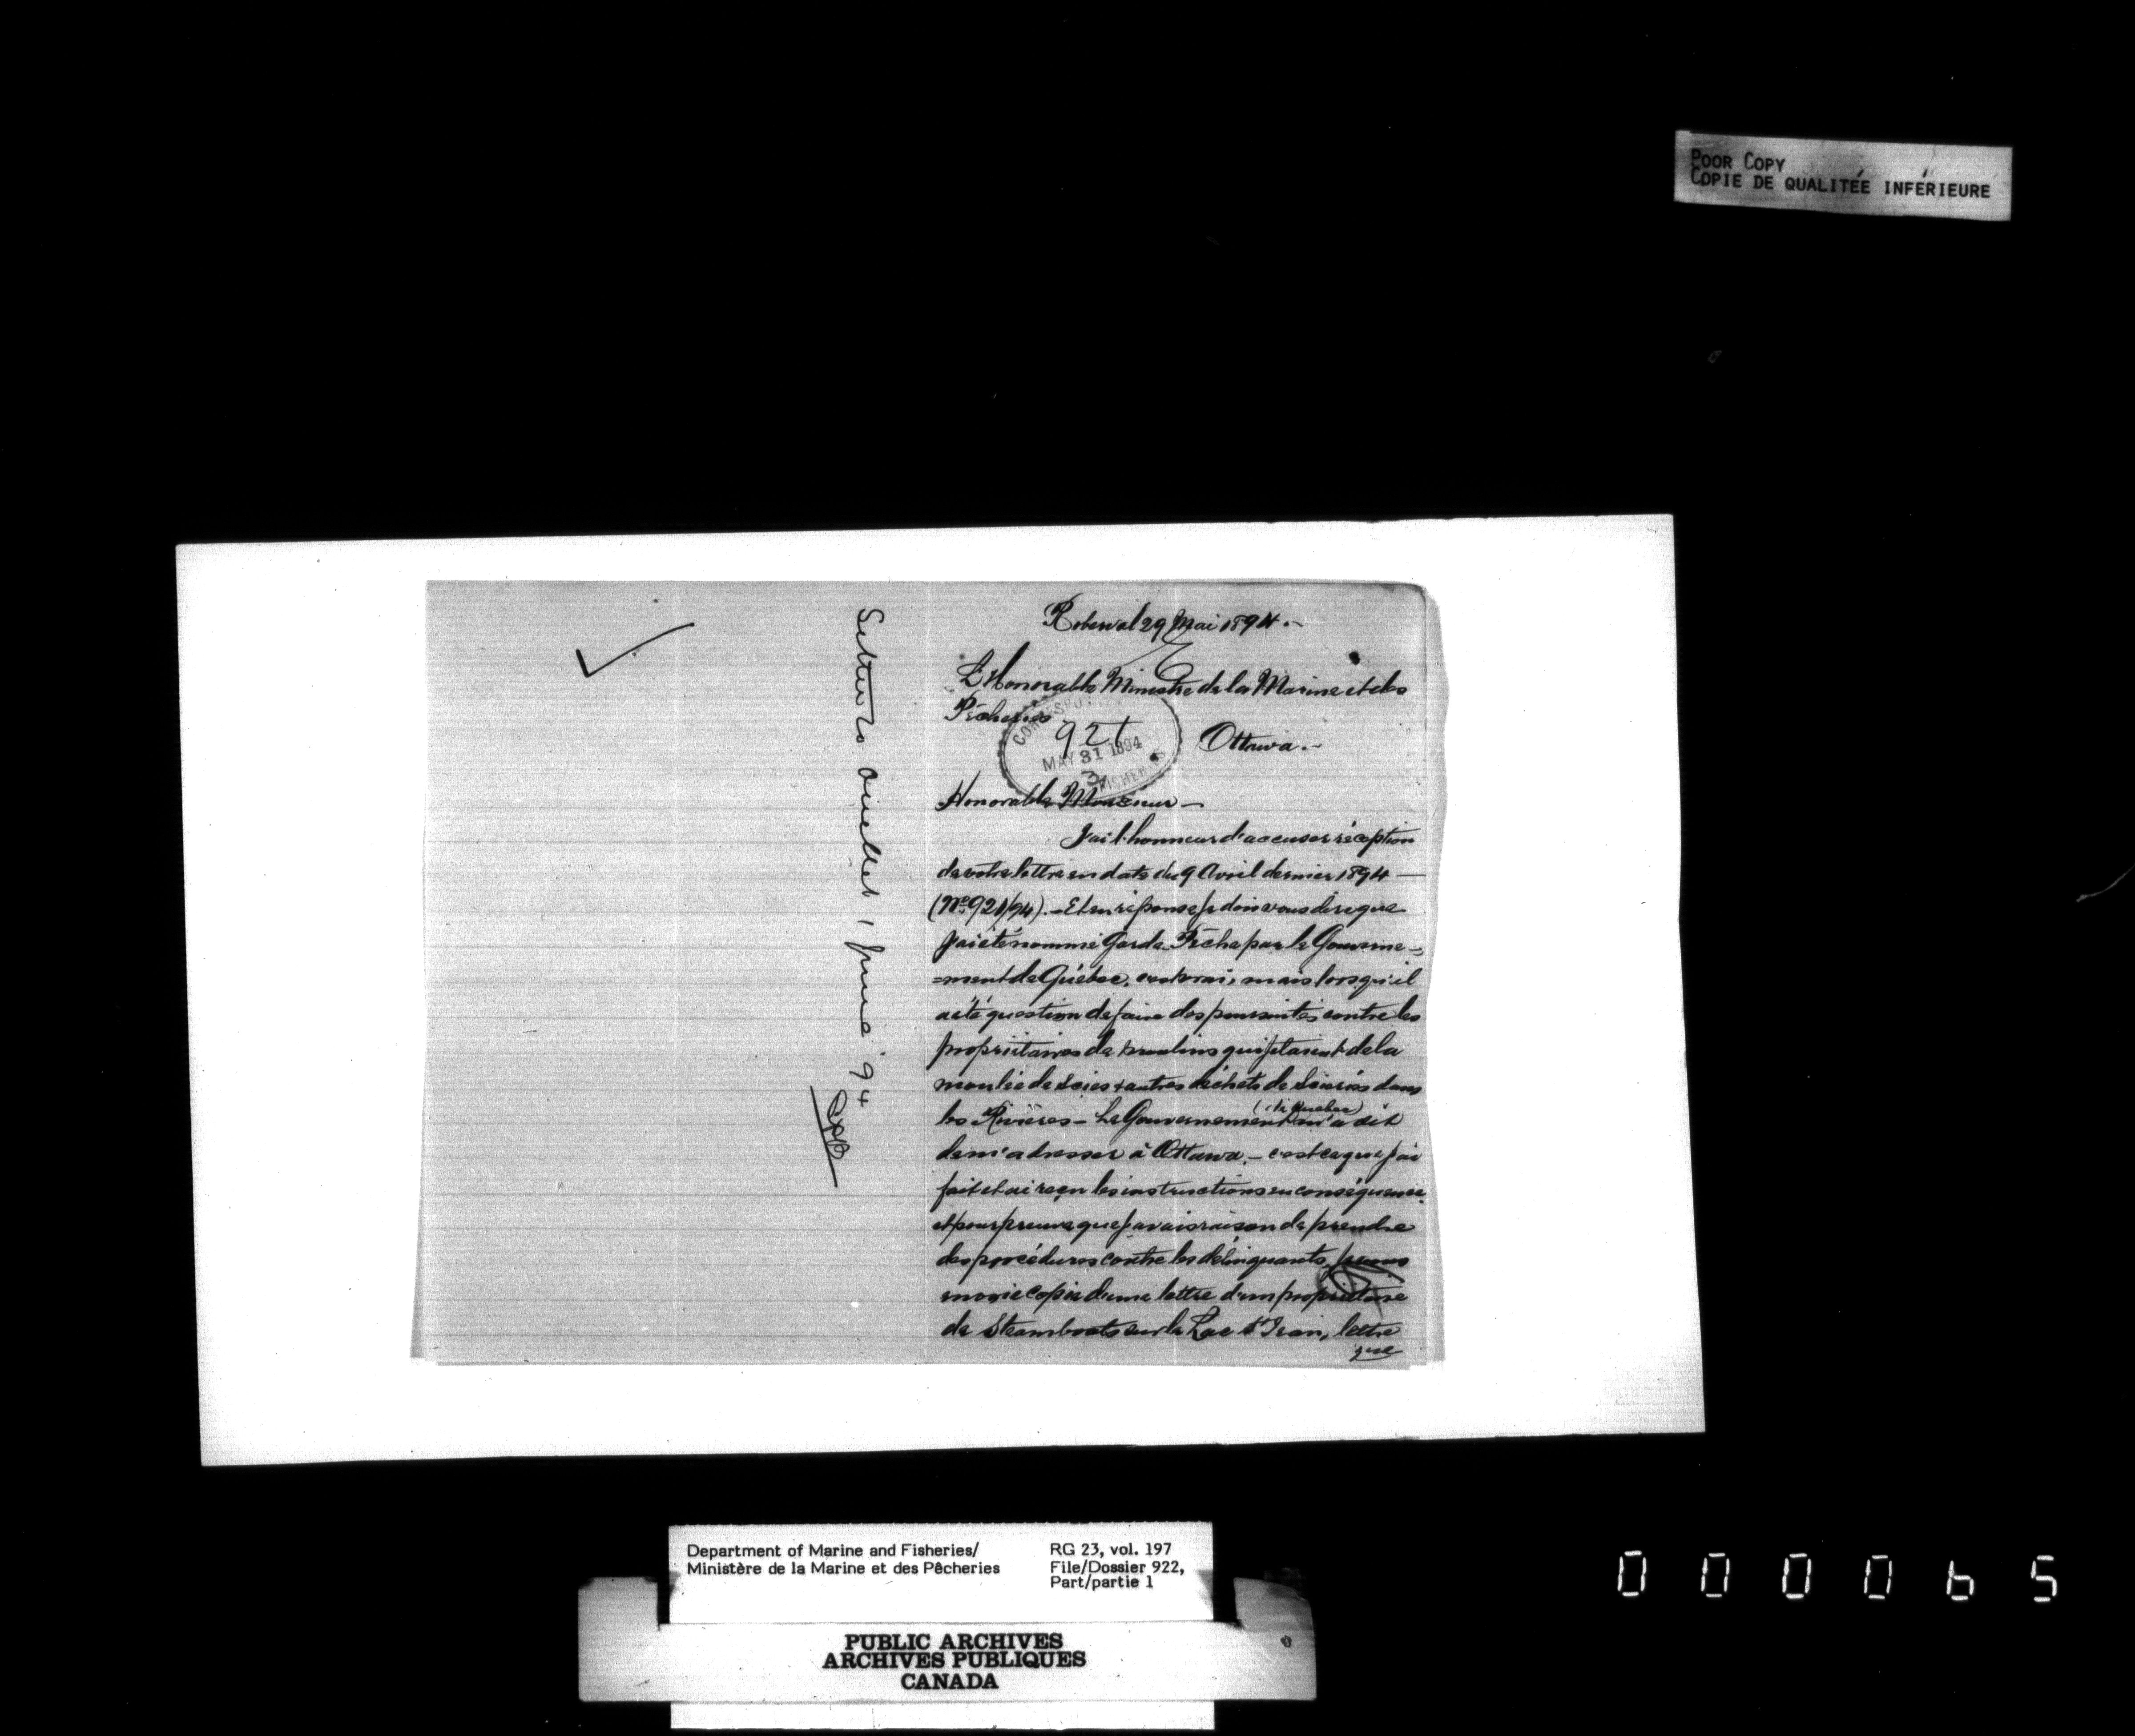 POOR COPY
COPIE DE QUALITÉE INFÉRIEURE
Roberval 29 Mai 1894.-
L'Honorable Ministre de la Marine et des
Pêcheries
Ottawa.-
921
MAY 31 1894
Honorable Monsieur -
J'ai l'honneur d'accuser réception
de votre lettre en date du 9 Avril dernier 1894 -
(No 921/94).- Et en réponse je dois vous dire que
j'ai été nommé Garde-Pêche par le Gouverne-
=ment de Québec, c'est vrai, mais lorsqu'il
a été question de faire des poursuites contre les
propriétaires de moulins qui jetaient de la
moulée de scies & autres déchets de scieries dans
les Rivières - Le Gouvernement (de Quebec) m'a dit
de m'adresser à Ottawa.- c'est ce que j'ai
fait et ai reçu les instructions en conséquence
et pour preuve que j'avais raison de prendre
des procédures contre les délinquants,
copie d'une lettre d'un propriétaire
de Steamboats sur le Lac St Jean, lettre
que
Letter to Ouellet 1 June '94
Department of Marine and Fisheries/
Ministère de la Marine et des Pêcheries
RG 23, vol. 197
File/Dossier 922,
Part/partie 1
PUBLIC ARCHIVES
ARCHIVES PUBLIQUES
CANADA
000065